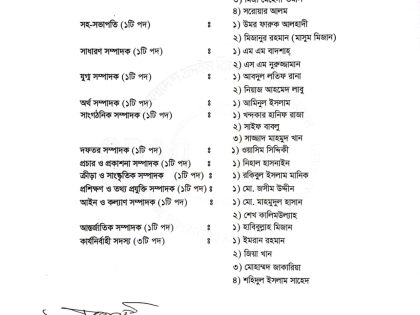 ৪) সরোয়ার আলম
সহ-সভাপতি (১টি পদ) ঃ ১) উমর ফারুক আলহাদী
২) মিজানুর রহমান (মাসুম মিজান)
সাধারণ সম্পাদক (১টি পদ) ঃ ১) এম এম বাদশাহ্
২) এস এম নুরুজ্জামান
যুগ্ম সম্পাদক (১টি পদ) ঃ ১) আবদুল লতিফ রানা
২) নিয়াজ আহমেদ লাবু
অর্থ সম্পাদক (১টি পদ) ঃ ১) আমিনুল ইসলাম
সাংগঠনিক সম্পাদক (১টি পদ) ঃ ১) খন্দকার হানিফ রাজা
২) সাইফ বাবলু
৩) সাজ্জাদ মাহমুদ খান
দফতর সম্পাদক (১টি পদ) ঃ ১) ওয়াসিম সিদ্দিকী
প্রচার ও প্রকাশনা সম্পাদক (১টি পদ) ঃ ১) নিহাল হাসনাইন
ক্রীড়া ও সাংস্কৃতিক সম্পাদক (১টি পদ) ঃ ১) রকিবুল ইসলাম মানিক
প্রশিক্ষণ ও তথ্য প্রযুক্তি সম্পাদক (১টি পদ) ঃ ১) মো. জসীম উদ্দীন
আইন ও কল্যাণ সম্পাদক (১টি পদ) ঃ ১) মো. মাহমুদুল হাসান
২) শেখ কালিমউল্যাহ
আন্তর্জাতিক সম্পাদক (১টি পদ) ঃ ১) হাবিবুল্লাহ মিজান
কার্যনির্বাহী সদস্য (৩টি পদ) ঃ ১) ইমরান রহমান
২) জিয়া খান
৩) মোহাম্মদ জাকারিয়া
৪) শহিদুল ইসলাম সাহেদ